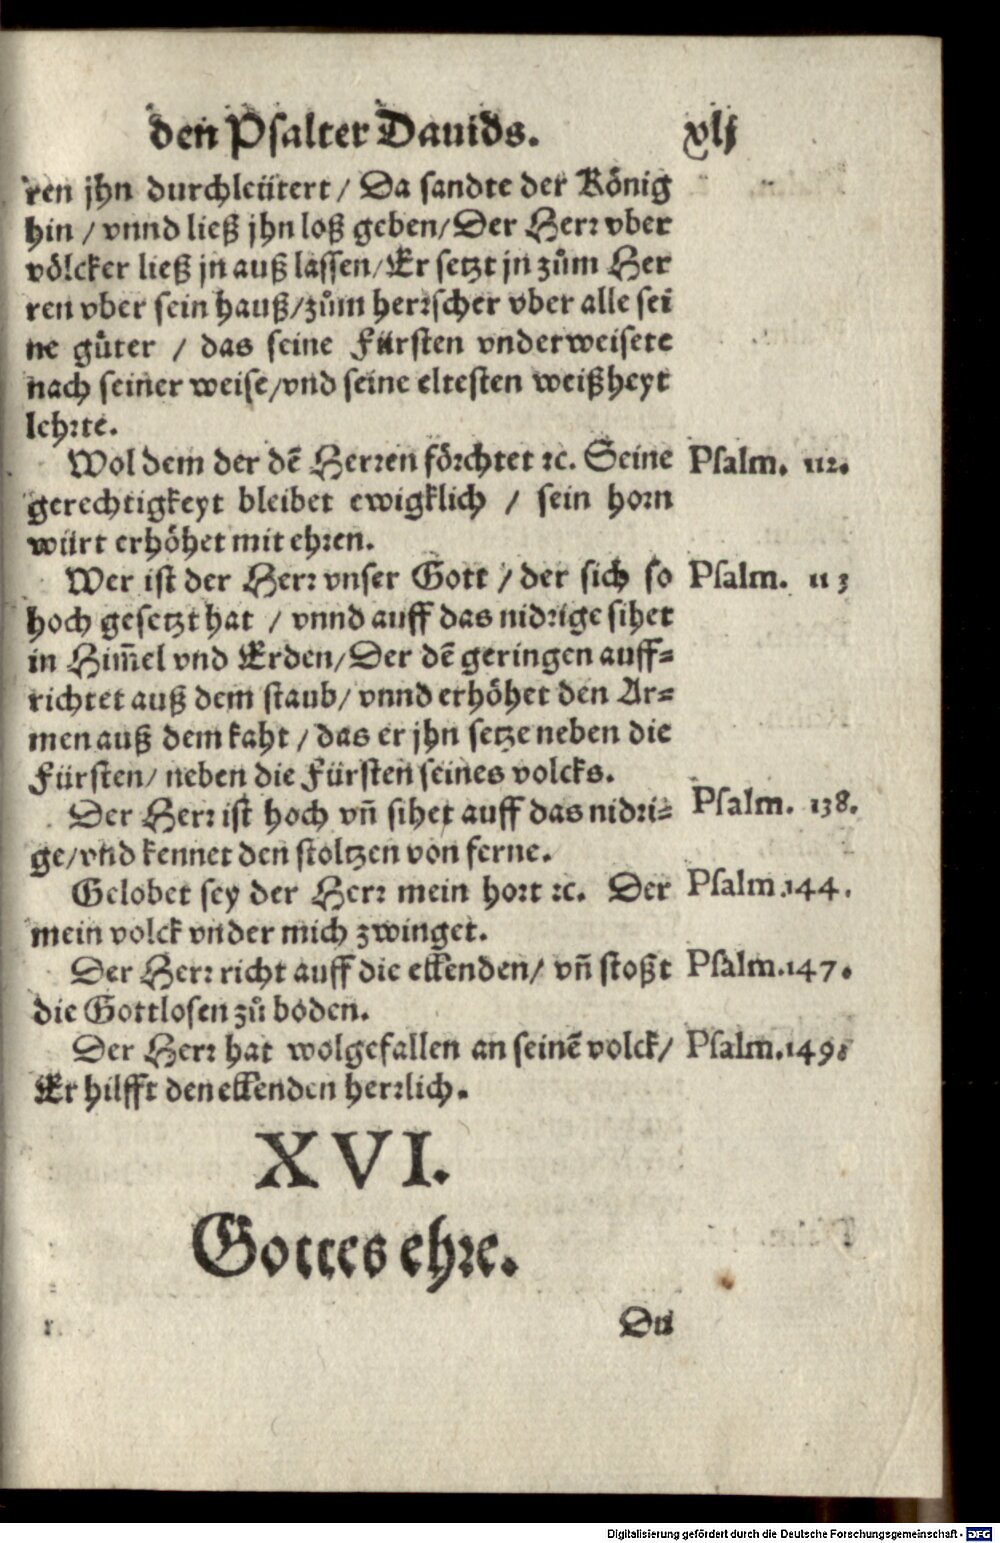 den Psalter Dauids. xlj
ren jhn durchleütert / Da sandte der König
hin / vnnd ließ jhn loß geben / Der Herr vber
völcker ließ jn auß lassen / Er setzt jn zům Her
ren vber sein hauß / zům herrscher vber alle sei
ne gůter / das seine Fürsten vnderweisete
nach seiner weise / vnd seine eltesten weißheyt
lehrte.
Wol dem der dē Herren förchtet ꝛc. Seine Psalm. 112.
gerechtigkeyt bleibet ewigklich / sein horn
würt erhöhet mit ehren.
Wer ist der Herr vnser Gott / der sich so Psalm. 113
hoch gesetzt hat / vnnd auff das nidrige sihet
in Him̄el vnd Erden / Der dē geringen auff⸗
richtet auß dem staub / vnnd erhöhet den Ar⸗
men auß dem kaht / das er jhn setze neben die
Fürsten / neben die Fürsten seines volcks.
Der Herr ist hoch vn̄ sihet auff das nidri⸗ Psalm. 138.
ge / vnd kennet den stoltzen von ferne.
Gelobet sey der Herr mein hort ꝛc. Der Psalm. 144.
mein volck vnder mich zwinget.
Der Herr richt auff die ellenden / vn̄ stoßt Psalm. 147.
die Gottlosen zů boden.
Der Herr hat wolgefallen an seinē volck / Psalm. 149.
Er hilfft den ellenden herrlich.
XVI.
Gottes ehre.
Du
Digitalisierung gefördert durch die Deutsche Forschungsgemeinschaft - DFG